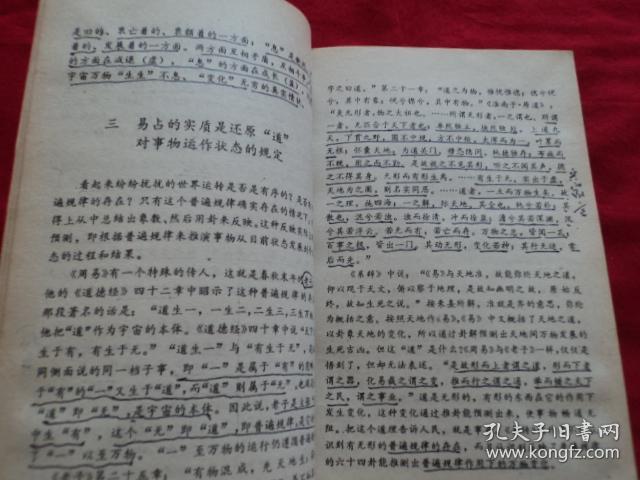 是旧的、衰亡着的、衰颓着的一方面；“息”是
着的、发展着的一方面。两方面互相矛盾，互相
的方面在减退（虚），“息”的方面在成长（盈），
宇宙万物“生生”不息、“变化”无穷的真实情状
三 易占的实质是还原“道”
对事物运作状态的规定
看起来纷纷扰扰的世界运转是否是有序的？是否有
律的存在？只有这个普遍规律确实存在的情况下，
得上从中总结出象数，然后用卦来反映。这种反映实际
预测，即根据普遍规律来推演事物从目前状态发展到
态的过程和结果。
《周易》有一个特殊的传人，这就是春秋末年的
他的《道德经》四十二章中昭示了这种普遍规律的
那段著名的话是：“道生一，一生二，二生三，三生万
他把“道”作为宇宙的本体。《道德经》四十章中说“
生于有，有生于无。”“道生一”与“有生于无”，
同侧面说的同一档子事，即“一”是属于“有”的
于“有”的“一”又生于“道”，而“道”则属于“无”，也
“道”即“无”，是宇宙的本体。因此说，老子是主
中生“有”，这个“无”即“道”，即普遍规律，是它
了“一”以至万物。“一”至万物的运行仍遵循普遍
《老子》第二十五章：“有物混成，先天地生
字之曰道。”第二十一章：“道之为物，惟恍惟惚；惚兮恍
兮，其中有象；恍兮惚兮，其中有物。”《淮南子·原道》：
“夫无形者，物之大祖也。……所谓无形者，一之谓也。所谓
一者，无匹合于天下者也。卓然独立，块然独处，上通九
天，下贯九野，圆不中规，方不中矩，大浑而为一，叶累而
无根；怀囊天地，为道关门，穆忞隐闵，纯德独存，布施而
不既，用之而不勤。是故视之不见其形，听之不闻其声，循
之不得其身，无形而有形生焉。……有生于无，实出于虚，
天地为之圈，则名实同居。……道者，一立而万物生矣。是故
一之理，施四海；一之解，际天地。其全也，纯兮若朴；其
散也，混兮若浊。浊而徐清，冲而徐盈，澹兮其若深渊，
泛兮其若浮云。若无而有，若亡而存。万物之总，皆阅一孔；
百事之根，皆出一门。其动无形，变化若神；其行无迹，常
后而先。”
《系辞》中说：“《易》与天地准，故能弥纶天地之道，
仰以观于天文，俯以察于地理，是故知幽明之故，原始反
终，故知生死之说。”按朱熹所解，准就是齐的意思，弥纶
为概括之意，按照天地作《易》，《易》中又概括了天地之道，
以卦象天地的变化，所以通过卦解预测出天地间万物发展的
生死吉凶。但这“道”是什么？《周易》与《老子》一样，但仅是
悟到了，但却无法表述。“是故形而上者谓之道，形而下者
谓之器，化而裁之谓之变，推而行之谓之通，举而错之天下之
民，谓之事业。”道是无形的，有形的东西在它的作用下
发生变化，这种变化通过推卦能预测出来，使事物畅通无
阻，把这个道行诉人民，指导人民行动
识到有普遍规律的存在，而
的六十四卦能推测出普遍规律作用下的万物变化
孔夫子旧书网
www.kongfz.com